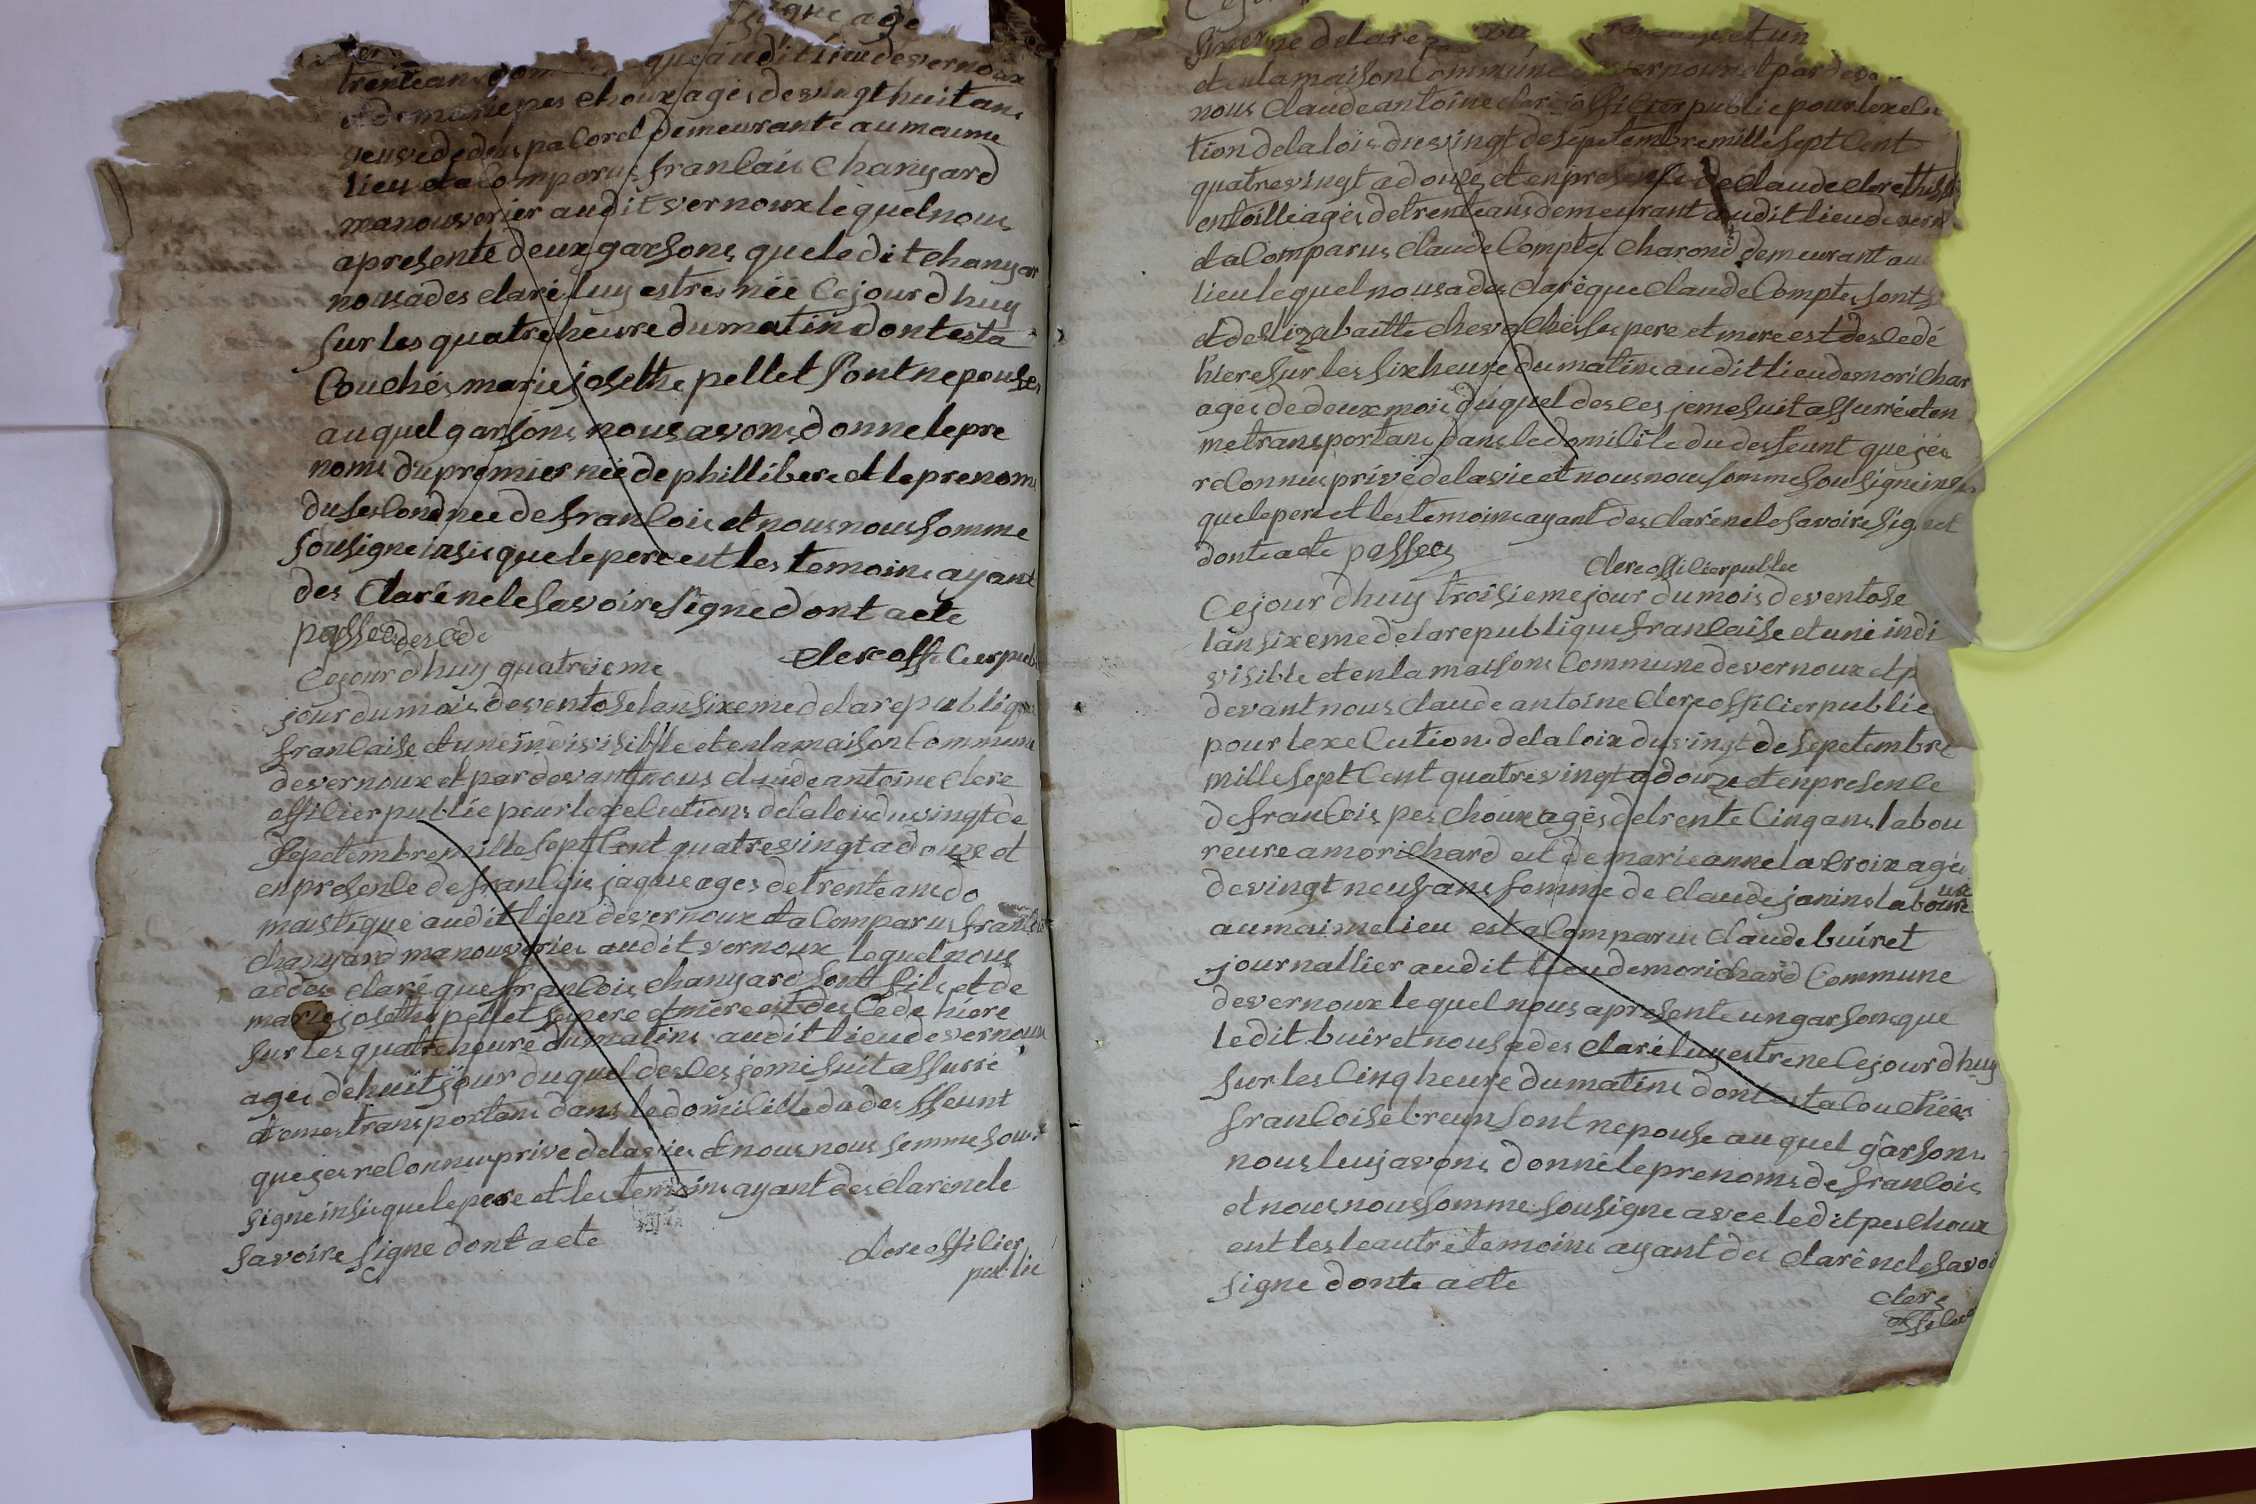 jaque age
trente ans dom que audit lieu de vernoux
et de marie pes choux ages de vingt huit ans
veuve de denis pacorel demeurante au maime
lieu et a comparus francais chanyard
manouvrier audit vernoux lequel nous
a presente deux garsons que le dit chanyar
nous a des claré luy estres néé ce jour d huy
sur les quatre heure du matin dont esta
couchés marie josethe pellet sont nepouse
auquel garsons nous avons donne le pre
noms du premier néé de phillibere et le prenom
du second nee de francois et nous nous somme
sousigne insis que le pere est les temoins ayant
des claré ne le savoire signe dont acte
passee deCede
clerc officier publ
ce jour d huy quatreieme
jour du mois de ventose lan sixeme de la republique
francaise et une indivisible et en la maison commune
de vernoux et par devant nous claude antoine clerc
officier publie pour lexecutions de la loix du vingt de
sepetembre mille sept cent quatre vingt a douze et
en presence de francois jaque ages de trente ans do
maistique audit lieu de vernoux et a comparus francois
chanyard manouvrier audit vernoux lequel nous
a des claré que francois chanyard sont fils et de
marie josethe pellet se pere et mere est des cede hiere
sur les quatre heure du matins audit lieu de vernoux
ages de huit jour duquel desces je me suit assurré
et me transportans dans le domicille du des ffeunt
que jes reconnus prive de la vies et nous nous somme sous
signe insis que le pere et les temoins ayant des claré ne le
savoire signe dont acte
clerc officier
publie
sixeme de la re et un
et en la maison commune vernoux et par deva
nous claude antoine clerc officier publie pour lexecu
tion de la lois du vingt de sepetembre mille sept cent
quatre vingt a douze et en presence de claude clere
ages de trente ans demeurant audit lieu de vern
et a comparus claude compte charond demeurant au
lieu lequel nous a des claré que claude compte sont
et deslizabaitte chevalhes se pere et mere est des cedé
hiere sur les six heure du matins audit lieu de morichar
ages de deux mois duquel desces je me suit assurré et en
me transportans dans le domicile du des feunt que jés
reconnus privé de la vie et nous nous somme sousigne ins
que le pere et les temoins ayant des claré ne le savoire signe
dont acte passee
clerc officier publie
ce jour d huy troisieme jour du mois de ventose
lan sixeme de la republique francaise et une indi
visible et en la maisons commune de vernoux et p
devant nous claude antoine clerc officier publie
pour lexecutions de la loix du vingt de sepetembre
mille sept cent quatre vingt a douze et en presence
de francois pes choux agés de trente cinq ans labou
reure a morichard est de marie anne la croix agée
de vingt neuf ans femme de claude janins laboure
ure
au maime lieu est a comparus claude buiret
journallier audit lieu de morichard commune
de vernoux lequel nous a presente un garsons que
le dit buiret nous a des claré luy estre ne ce jour d huy
sur les cinq heure du matins dont esta couchées
francoise breun sont nepouse auquel garsons
nous luy avons donné le prenoms de francois
et nous nous somme sousigne avec le dit pes choux
ent les leautre temoins ayant des claré ne le savoi
signe donte acte
clerc
officier